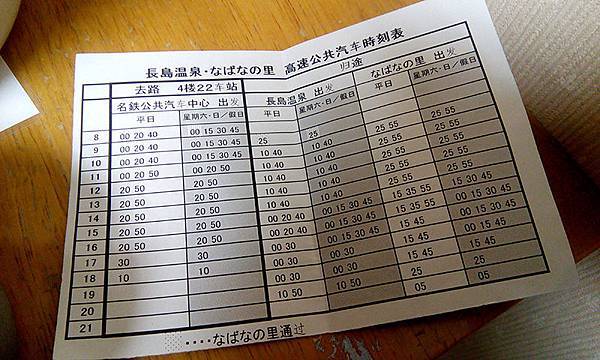 長島温泉・なばなの里 高速公共汽车時刻表
去路 4楼22车站 归途
名鉄公共汽车中心 出发 長島温泉 出发 なばなの里 出发
平日 星期六・日/假日 平日 星期六・日/假日 平日 星期六・日/假日
8 00 20 40 00 15 30 45
9 00 20 40 00 15 30 45 25 25 25 55 25 55
10 00 20 40 00 15 30 45 10 40 10 40 25 55 25 55
11 00 20 50 00 20 50 10 40 10 40 25 55 25 55
12 20 50 20 50 10 40 10 40 25 55 25 55
13 20 50 20 50 10 40 10 40 25 55 25 55
14 20 50 20 50 10 40 10 40 15 35 55 00 15 30 45
15 20 50 20 50 00 20 40 00 15 30 45 15 35 55 00 15 30 45
16 20 50 20 50 00 20 40 00 15 30 45 15 45 15 45
17 30 30 00 30 00 30 15 45 15 45
18 10 10 00 30 00 30 15 45 15 45
19 00 30 00 30 25 25
20 10 50 10 50 05 05
21
・・・・・なばなの里通过